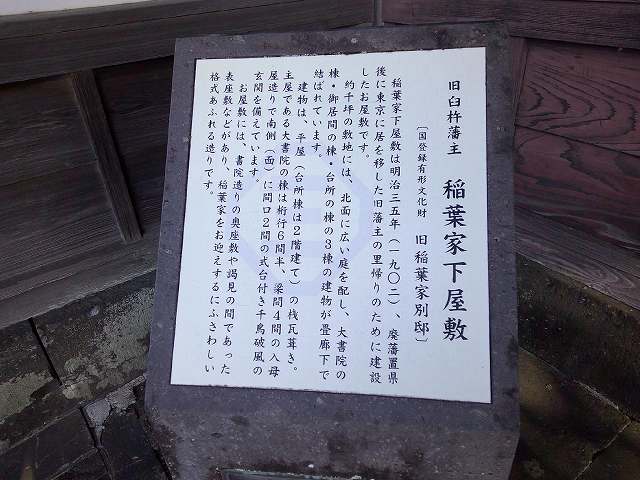 旧臼杵藩主 稲葉家下屋敷
〔国登録有形文化財 旧稲葉家別邸〕
稲葉家下屋敷は明治三五年(一九〇二)、廃藩置県
後に東京に居を移した旧藩主の里帰りのために建設
したお屋敷です。
約千坪の敷地には、北面に広い庭を配し、大書院の
棟・御居間の棟・台所の棟の3棟の建物が畳廊下で
結ばれています。
建物は、平屋(台所棟は2階建て)の桟瓦葺き。
主屋である大書院の棟は桁行6間半、梁間4間の入母
屋造りで南側(面)に間口2間の式台付き千鳥破風の
玄関を備えています。
お屋敷には、書院造りの奥座敷や謁見の間であった
表座敷などがあり、稲葉家をお迎えするにふさわしい
格式あふれる造りです。